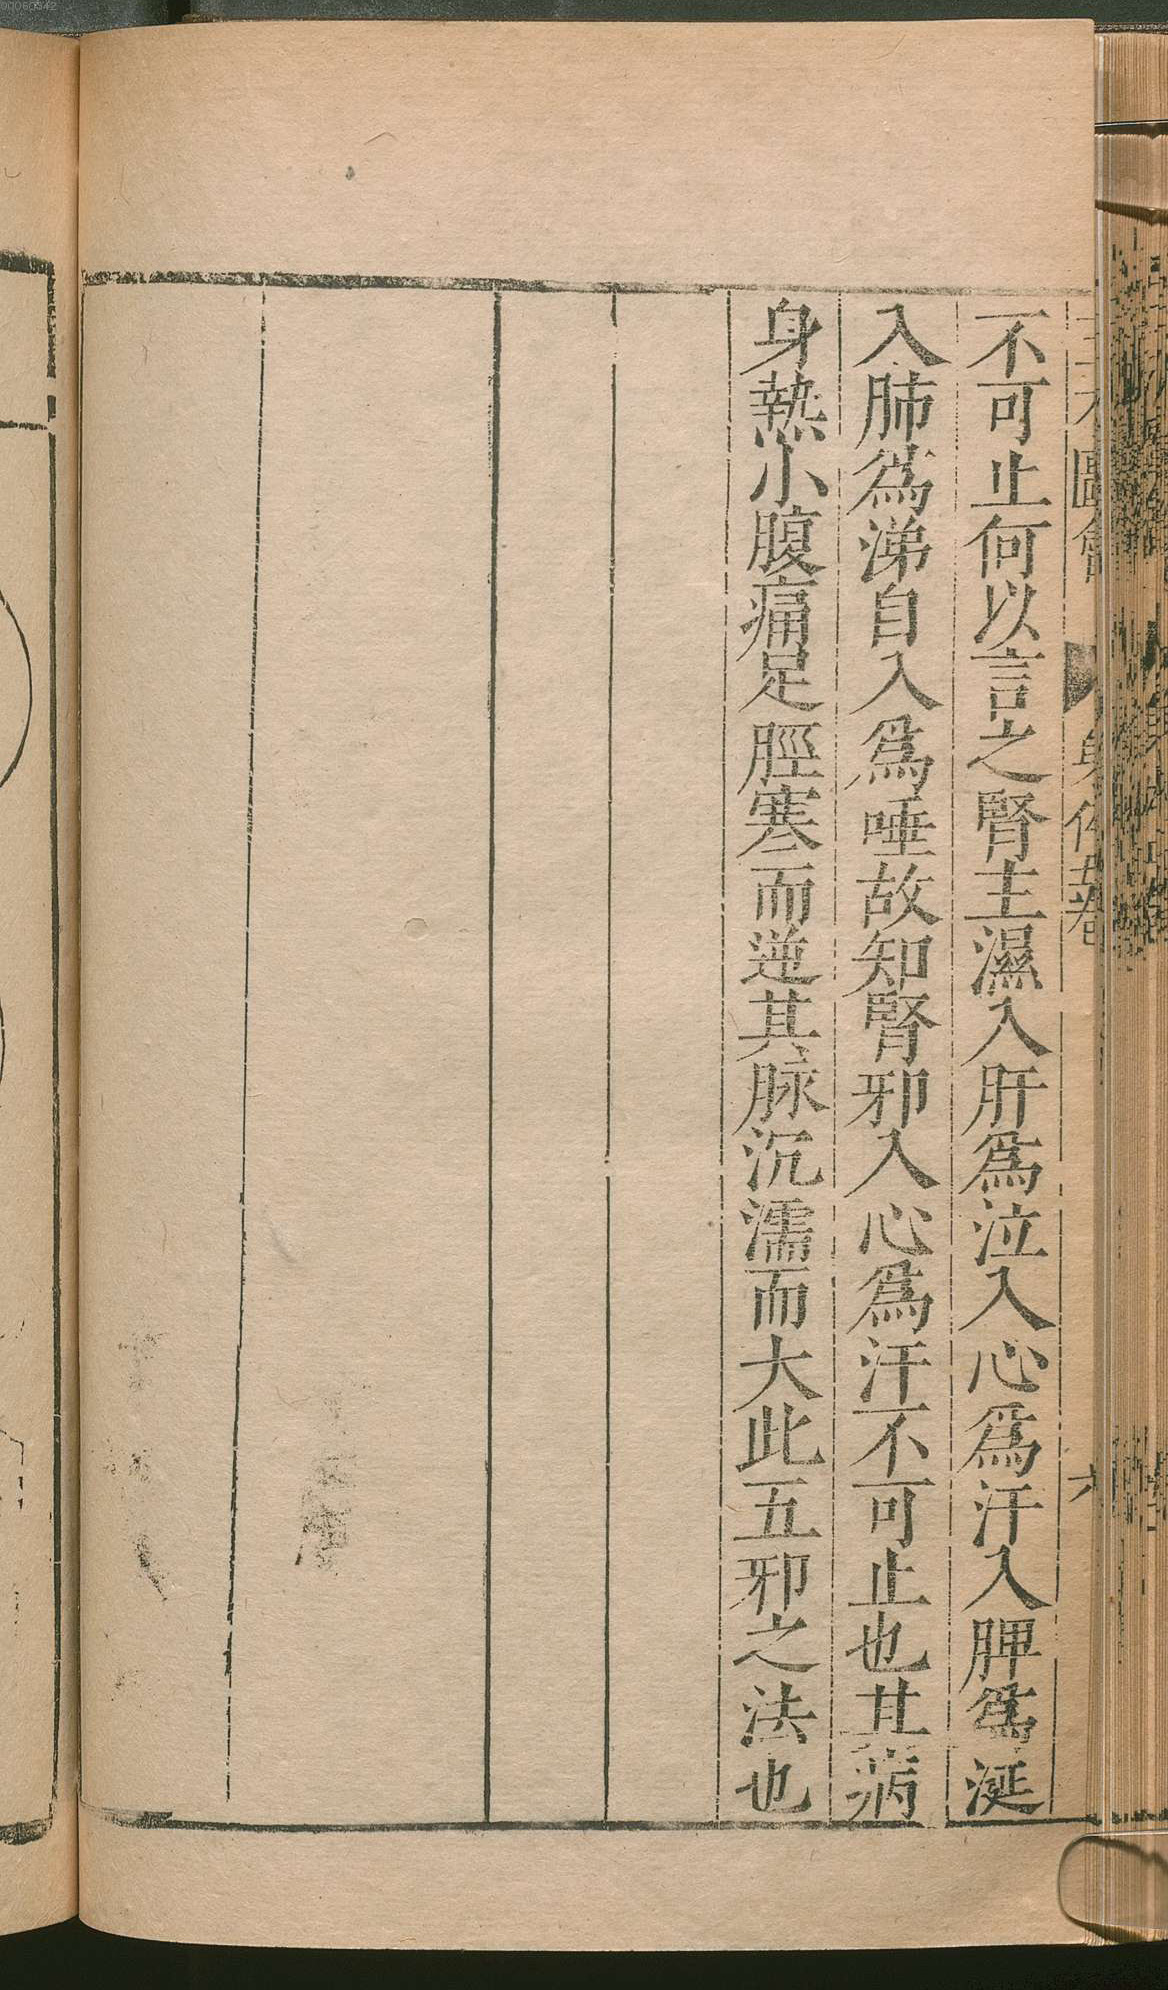 不可止何以言之腎主濕入肝爲泣入心爲汗入脾爲涎
入肺爲涕自入爲唾故知腎邪入心爲汗不可止也其病
身熱小腹痛足脛寒而逆其脉沉濡而大此五邪之法也